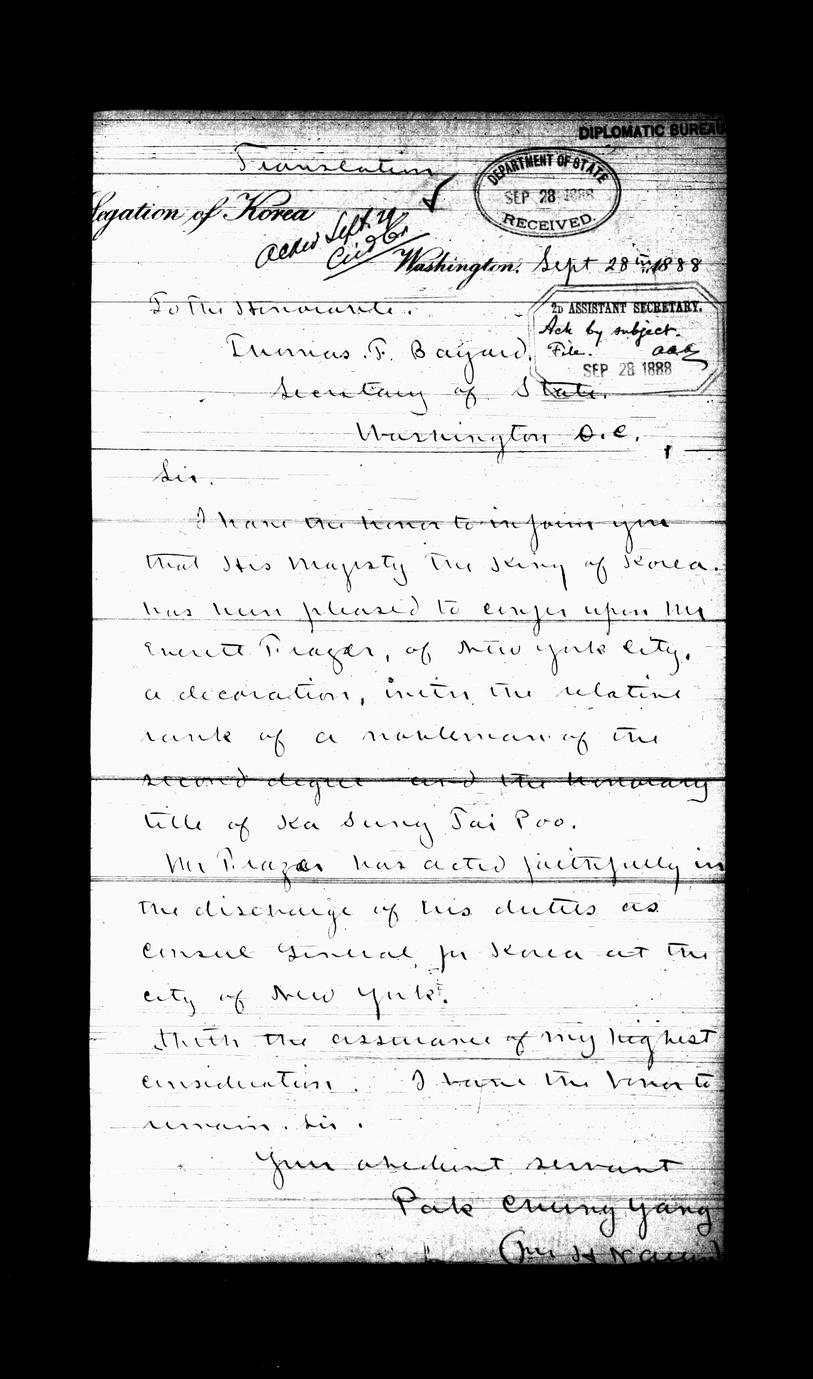 DIPLOMATIC BUREAU
Translation
DEPARTMENT OF STATE
SEP 28 1888
RECEIVED.
Legation of Korea
Washington, Sept 28th 1888
To the Honorable.
2D ASSISTANT SECRETARY.
Ack by subject.
File. aaa
SEP 28 1888
Thomas. F. Bayard.
Secretary of State.
Washington D.C.
Sir.
I have the honor to inform you
that His Majesty the King of Korea.
has been pleased to confer upon Mr
Everett Frazar, of New York City.
a decoration, with the relative
rank of a nobleman of the
second degree and the honorary
title of Ka Sung Tai Poo.
Mr Frazar has acted faithfully in
the discharge of his duties as
Consul General for Korea at the
city of New York.
With the assurance of my highest
consideration. I have the honor to
remain. Sir.
Your obedient servant
Pak Chung Yang